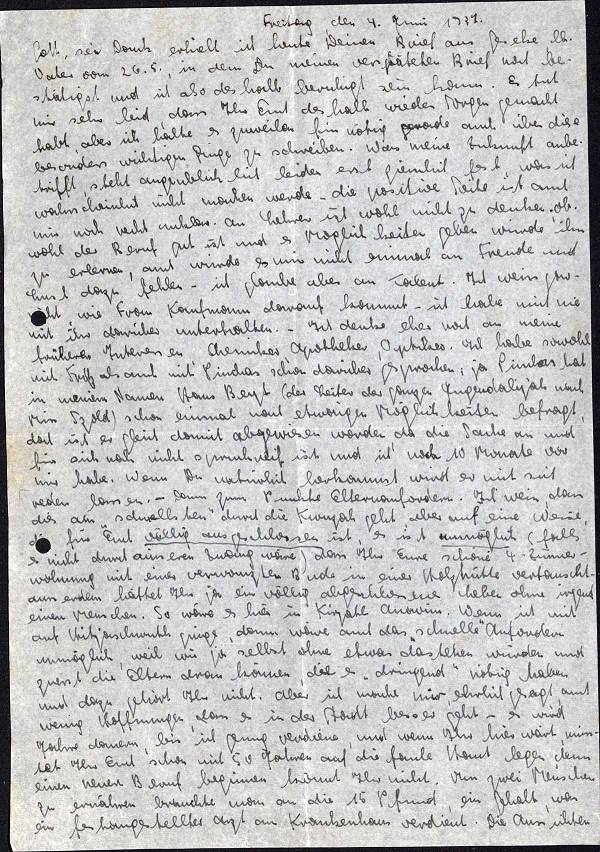 Freitag den 4. Juni 1937.
Gott sei Dank erhielt ich heute Deinen Brief aus lb.
Vater vom 26.5., in dem Du meinen verspäteten Brief noch be-
stätigst und ich also deshalb beruhigt sein kann. Es tut
mir sehr leid, dass Ihr Euch deshalb wieder Sorgen gemacht
habt, aber ich halte es zuweilen für nötig gerade auch über diese
besonders wichtigen Dinge zu schreiben. Was meine Zukunft anbe-
trifft steht augenblicklich leider erst ziemlich fest, was ich
wahrscheinlich nicht machen werde – die positive Seite ist auch
mir noch recht unklar. An Lehrer ist wohl nicht zu denken, ob-
wohl der Beruf gut ist und es Möglichkeiten geben würde ihn
zu erlernen, auch würde es mir nicht einmal an Freude und
Lust dazu fehlen – ich glaube aber an Talent. Ich weiss gar-
nicht wie Frau Kaufmann darauf kommt – ich habe mich nie
mit ihr darüber unterhalten. – Ich denke eher noch an meine
früheren Interessen Chemiker, Apotheker, Optiker. Ich habe sowohl
mit als auch mit Pinchas schon darüber gesprochen, ja Pinchas hat
in meinem Namen Hans Beyt (der Leiter der ganzen Jugendalijah nach
Miss Szold) schon einmal nach etwaigen Möglichkeiten befragt,
doch ist er gleich damit abgewiesen worden da die Sache an und
für sich noch nicht spruchreif ist und ich noch 10 Monate vor
mir habe. Wenn Du natürlich herkommst wird er mit sich
reden lassen. – Dann zum Punkte Elternanfordern. Ich weiss dass
das am "schnellsten" durch die Kwuzah geht aber auf eine Weise,
die für Euch völlig ausgeschlossen ist, es ist unmöglich (falls
es nicht durch äusseren Zwang wäre) dass Ihr Eure schöne 4-Zimmer-
wohnung mit einer verwanzten Bude in einer Holzhütte vertauscht –
ausserdem hättet Ihr ja ein völlig abgeschlossenes Leben ohne irgend
einen Menschen. So wäre es hier in Kirjath Anawim. Wenn ich mit
auf Hitjaschwuth ginge, dann wäre auch das "schnelle" Anfordern
unmöglich, weil wir ja selbst ohne etwas dastehen würden und
zuerst die Eltern dran kämen die es "dringend" nötig haben
und dazu gehört Ihr nicht. Aber ich mache mir ehrlich gesagt auch
wenig Hoffnungen, dass es in der Stadt besser geht – es wird
Jahre dauern, bis ich genug verdiene, und wenn Ihr hier wärt müss-
tet Ihr Euch schon mit 50 Jahren auf die faule Haut legen, denn
einen neuen Beruf beginnen könnt Ihr nicht. Um zwei Menschen
zu ernähren brauchte man an die 15 Pfund, ein Gehalt was
ein festangestellter Arzt am Krankenhaus verdient. Die Aussichten